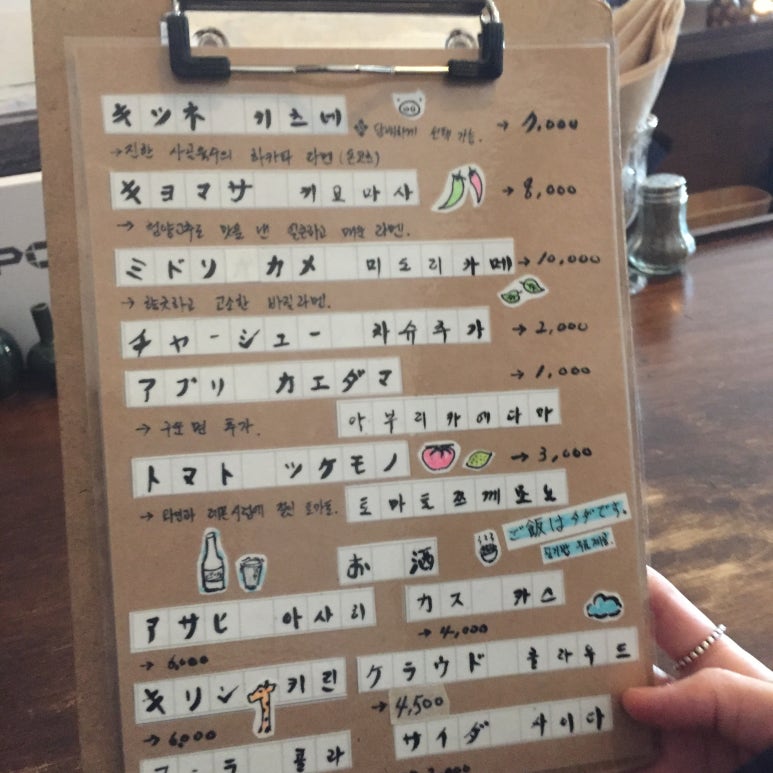 キツネ 키츠네 담백하게 선택 가능. → 9,000
→ 진한 사골육수의 하카타 라멘 (돈코츠)
キヨマサ 키요마사 → 8,000
→ 청양고추로 맛을 낸 얼큰하고 매운 라멘.
ミドリ カメ 미도리카메 → 10,000
→ 향긋하고 고소한 바질라멘.
チャーシュー 차슈추가 → 2,000
アブリ カエダマ → 1,000
→ 구운 면 추가. 아부리카에다마
トマト ツケモノ → 3,000
→ 라멘과 레몬시럽에 절인 토마토. 토마토쯔께모노
ご飯はタダです。
공기밥 무료제공
お 酒
アサヒ 아사히
→ 6,000
カス 카스
→ 4,000
キリン 키린
→ 6,000
ケラウド 클라우드
→ 4,500
サイダ 사이다
콜라